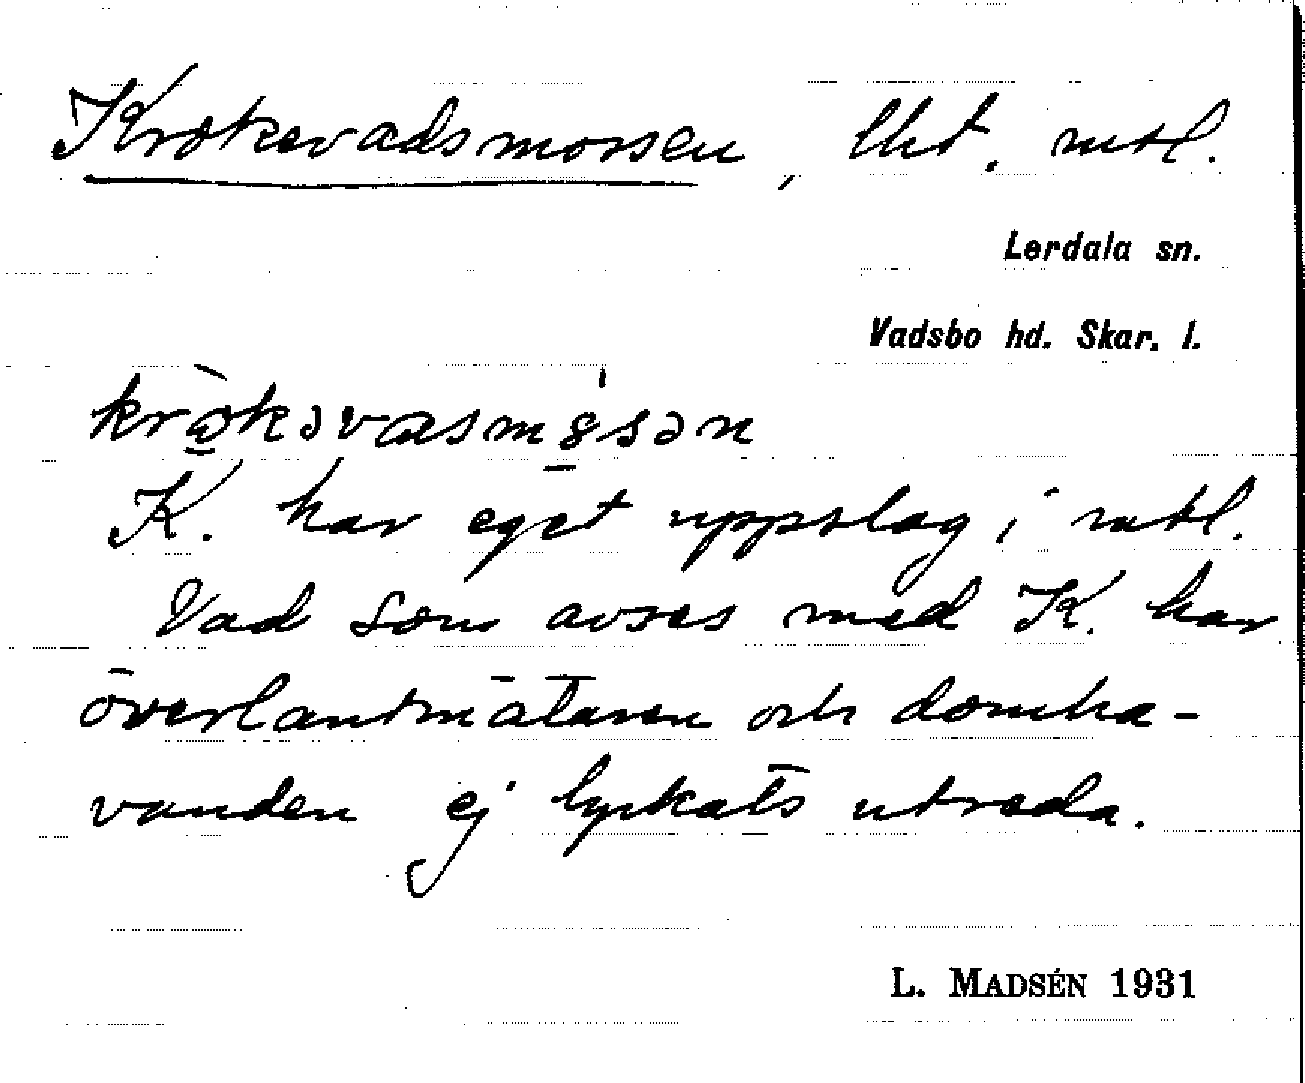 Krokevadsmossen, lht. mtl.
Lerdala sn.
Vadsbo hd. Skar. l.
K. har eget uppslag i mtl.
Vad som avses med K. har
överlantmätaren och domha-
vanden ej lyckats utreda.
L. MADSÉN 1931